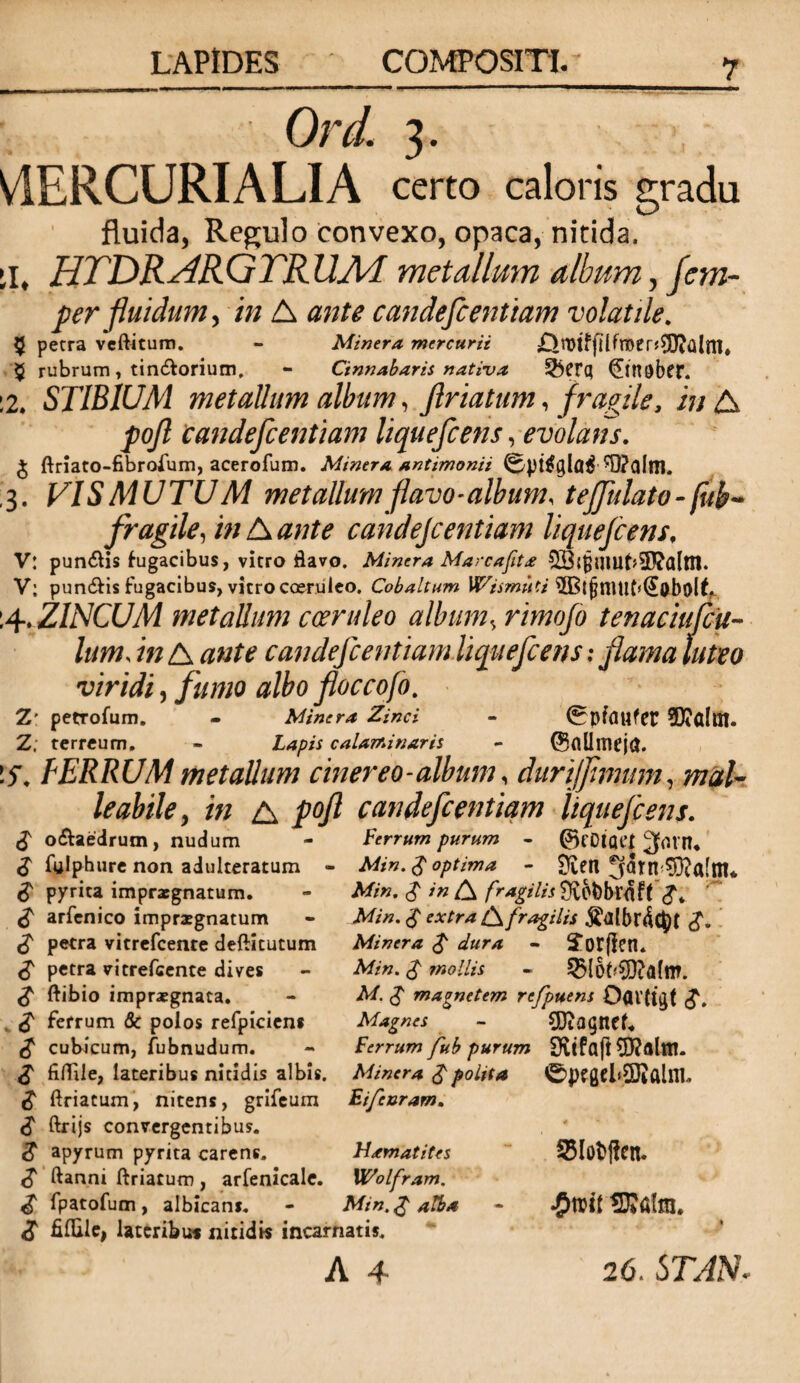 LAPIDES COMPOSITI. 7
Ord. 3.
MERCURIALIA certo caloris gradu
fluida, Regulo convexo, opaca, nitida.
21. HYDRARGYRUM metallum album, ſem-
per fluidum, in 🜂 ante candeſcentiam volatile.
☿ petra veſtitum. - Minera mercurii Qwikſilfwer-Malm.
☿ rubrum, tinctorium. - Cinnabaris nativa Berg Cinober.
22. STIBIUM metallum album, ſtriatum, fragile, in 🜂
poſt candeſcentiam liqueſcens, evolans.
♁ ſtriato-fibroſum, aceroſum. Minera antimonii Spitsglas Malm.
23. VISMUTUM metallum flavo-album, teſſulato-ſub-
fragile, in 🜂 ante candeſcentiam liqueſcens.
V: punctis fugacibus, vitro flavo. Minera Marcaſitæ Wiſzmut-Malm.
V: punctis fugacibus, vitro cœruleo. Cobaltum Wismuti Wiſzmut-Cobolt.
24. ZINCUM metallum cœruleo album, rimoſo tenaciuſcu-
lum, in 🜂 ante candeſcentiam liqueſcens: flama luteo
viridi, fumo albo floccoſo.
Z: petroſum. - Minera Zinci - Spiauter Malm.
Z: terreum. - Lapis calaminaris - Gallmeja.
25. FERRUM metallum cinereo-album, duriſſimum, mal-
leabile, in 🜂 poſt candeſcentiam liqueſcens.
♂ octaëdrum, nudum - Ferrum purum - Gediget Jarn.
♂ ſulphure non adulteratum - Min. ♂ optima - Ren Järn-Malm.
♂ pyrita imprægnatum. - Min. ♂ in 🜂 fragilis Rödbräkt ♂.
♂ arſenico imprægnatum - Min. ♂ extra 🜂 fragilis Kalbrächt ♂.
♂ petra vitreſcente deſtitutum Minera ♂ dura - Torſten.
♂ petra vitreſcente dives - Min. ♂ mollis - Blöt-Malm.
♂ ſtibio imprægnata. - M. ♂ magnetem reſpuens Oartigt ♂.
♂ ferrum & polos reſpiciens Magnes - Magnet.
♂ cubicum, ſubnudum. - Ferrum ſub purum Rikaſt Malm.
♂ fiſſile, lateribus nitidis albis. Minera ♂ polita Spegel-Malm.
♂ ſtriatum, nitens, griſeum Eiſenram.
♂ ſtrijs convergentibus.
♂ apyrum pyrita carens. Hæmatites Blodſten.
♂ ſtanni ſtriatum, arſenicale. Wolfram.
♂ ſpatoſum, albicans. - Min. ♂ alba - Hwit Malm.
♂ fiſſile, lateribus nitidis incarnatis.
A 4 26. STAN-